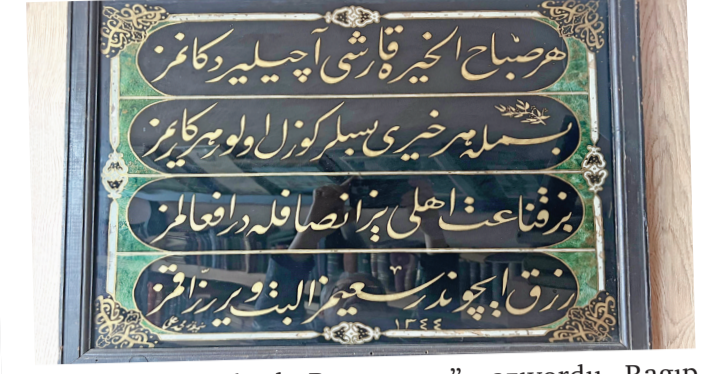 هر صباح الخیره قارشی آچیلیر دکانمز
بسمله هر خیری بسلر کوزل اولور هر کاریمز
بز قناعت اهلی یز انصافله در افعالمز
رزق ایچوندر سعیمز البت ویرر رزاقمز
١٣٤٤
” yazıyordu. Ragıp